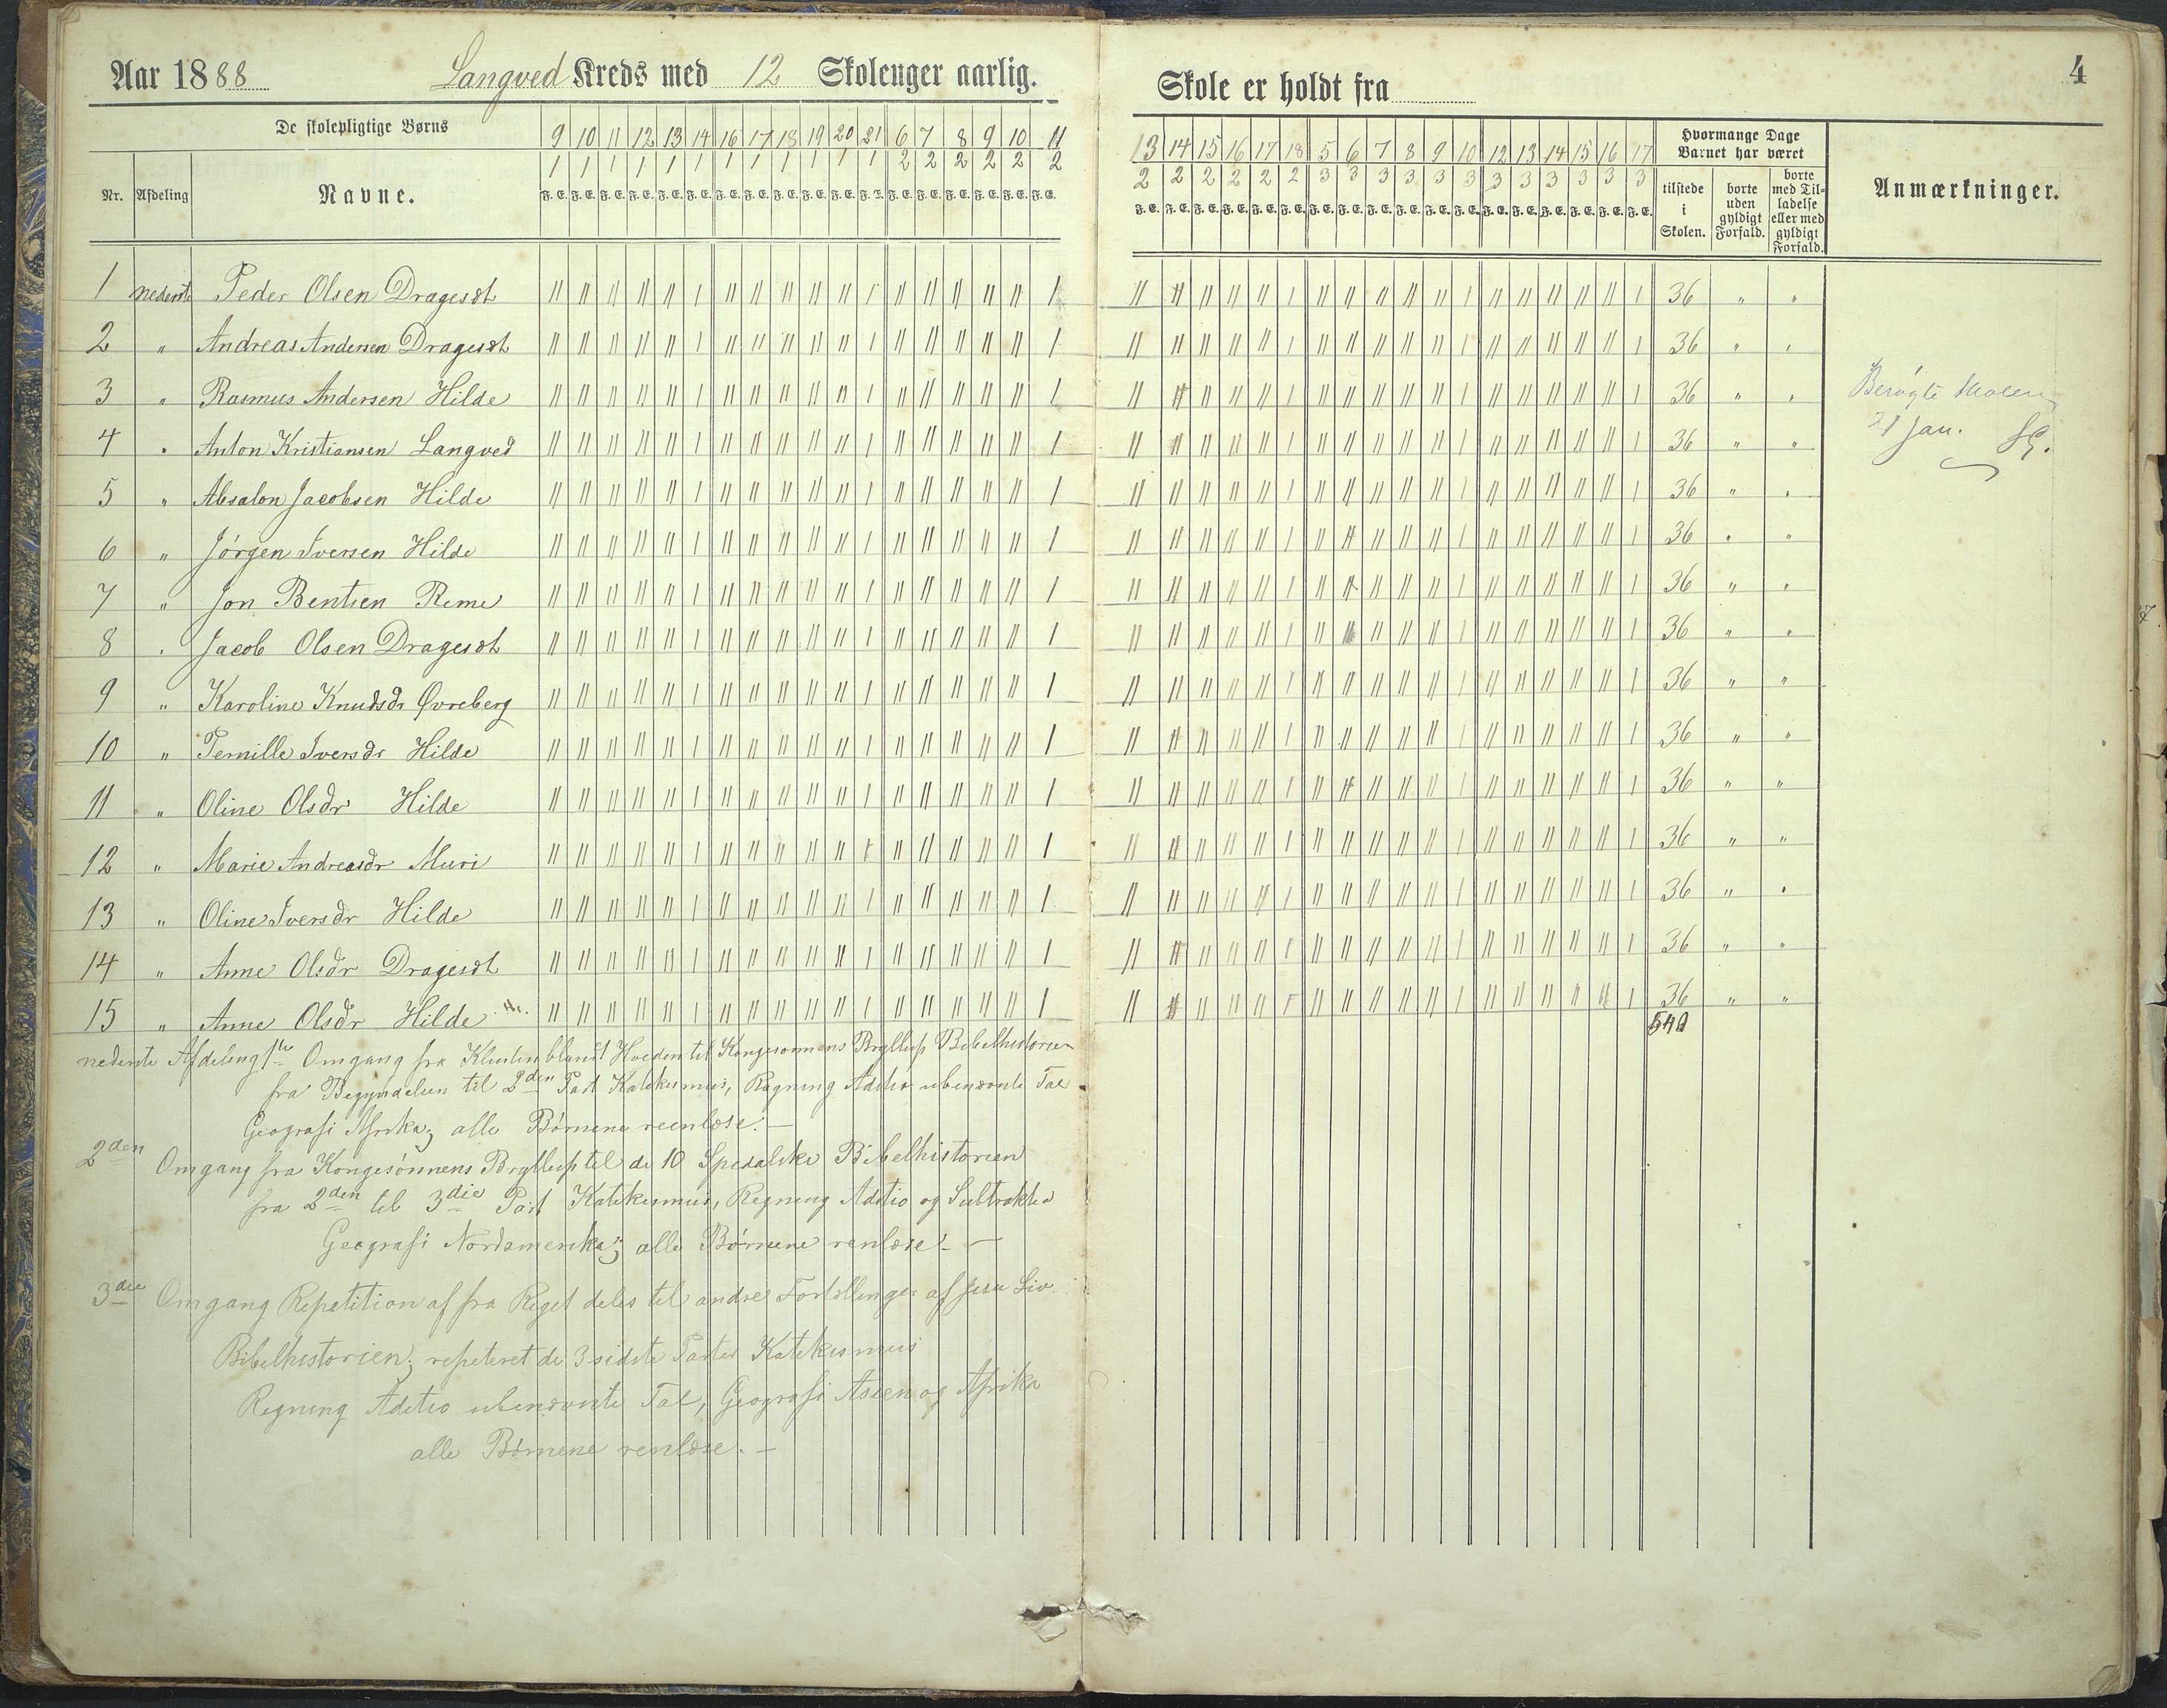 Aar 1888 Langved Kreds med 12 Skoleuger aarlig.
De skolepligtige Børns 9 10 11 12 13 14 16 17 18 19 20 21 6 7 8 9 10 11
1 1 1 1 1 1 1 1 1 1 1 1 2 2 2 2 2 2
Nr. Afdeling Navne. F. E. F. E. F. E. F. E. F. E. F. E. F. E. F. E. F. E. F. E. F. E. F. E. F. E. F. E. F. E. F. E. F. E. F. E.
1 nederste Peder Olsen Dragesdt
2 " Andreas Andersen Dragesdt
3 " Rasmus Andersen Hilde
4 " Anton Kristiansen Langved
5 " Absalon Jacobsen Hilde
6 " Jørgen Iversen Hilde
7 " Jon Bentsen Reme
8 " Jacob Olsen Dragesdt
9 " Karoline Knudsdr Øvreberg
10 " Pernille Iversdr Hilde
11 " Oline Olsdr Hilde
12 " Marie Andreasdr Muri
13 " Oline Iversdr Hilde
14 " Anne Olsdr Dragesdt
15 " Anne Olsdr Hilde
nederste Afdeling 1ste Omgang fra Klinten blandt Hveden til Kongesønnens Bryllup Bibelhistorien
fra Begyndelsen til 2den Part Katekismus, Regning Aditio ubenævnte Tal
Geografi Afrika; alle Børnene reenlæse. —
2den Omgang fra Kongesønnens Bryllup til de 10 Spedalske Bibelhistorien
fra 2den til 3die Part Katekismus, Regning Aditio og Subtraktio
Geografi Nordamerika; alle Børnene renlæse. —
3die Omgang Repetition af fra Riget deles til andre Fortellinger af Jesu Liv
Bibelhistorien; repeteret de 3 sidste Parter Katekismus
Regning Aditio ubenævnte Tal, Geografi Asien og Afrika
alle Børnene renlæse. —
Skole er holdt fra 4
13 14 15 16 17 18 5 6 7 8 9 10 12 13 14 15 16 17 Hvormange Dage Barnet har været
2 2 2 2 2 2 3 3 3 3 3 3 3 3 3 3 3 3
F. E. F. E. F. E. F. E. F. E. F. E. F. E. F. E. F. E. F. E. F. E. F. E. F. E. F. E. F. E. F. E. F. E. F. E.
tilstede i Skolen. borte uden gyldigt Forfald. borte med Tilladelse eller med gyldigt Forfald. Anmærkninger.
36 " "
36 " "
36 " " Besøgte skolen
36 " " 21 Jan.
36 " "
36 " "
36 " "
36 " "
36 " "
36 " "
36 " "
36 " "
36 " "
36 " "
36 " "
540